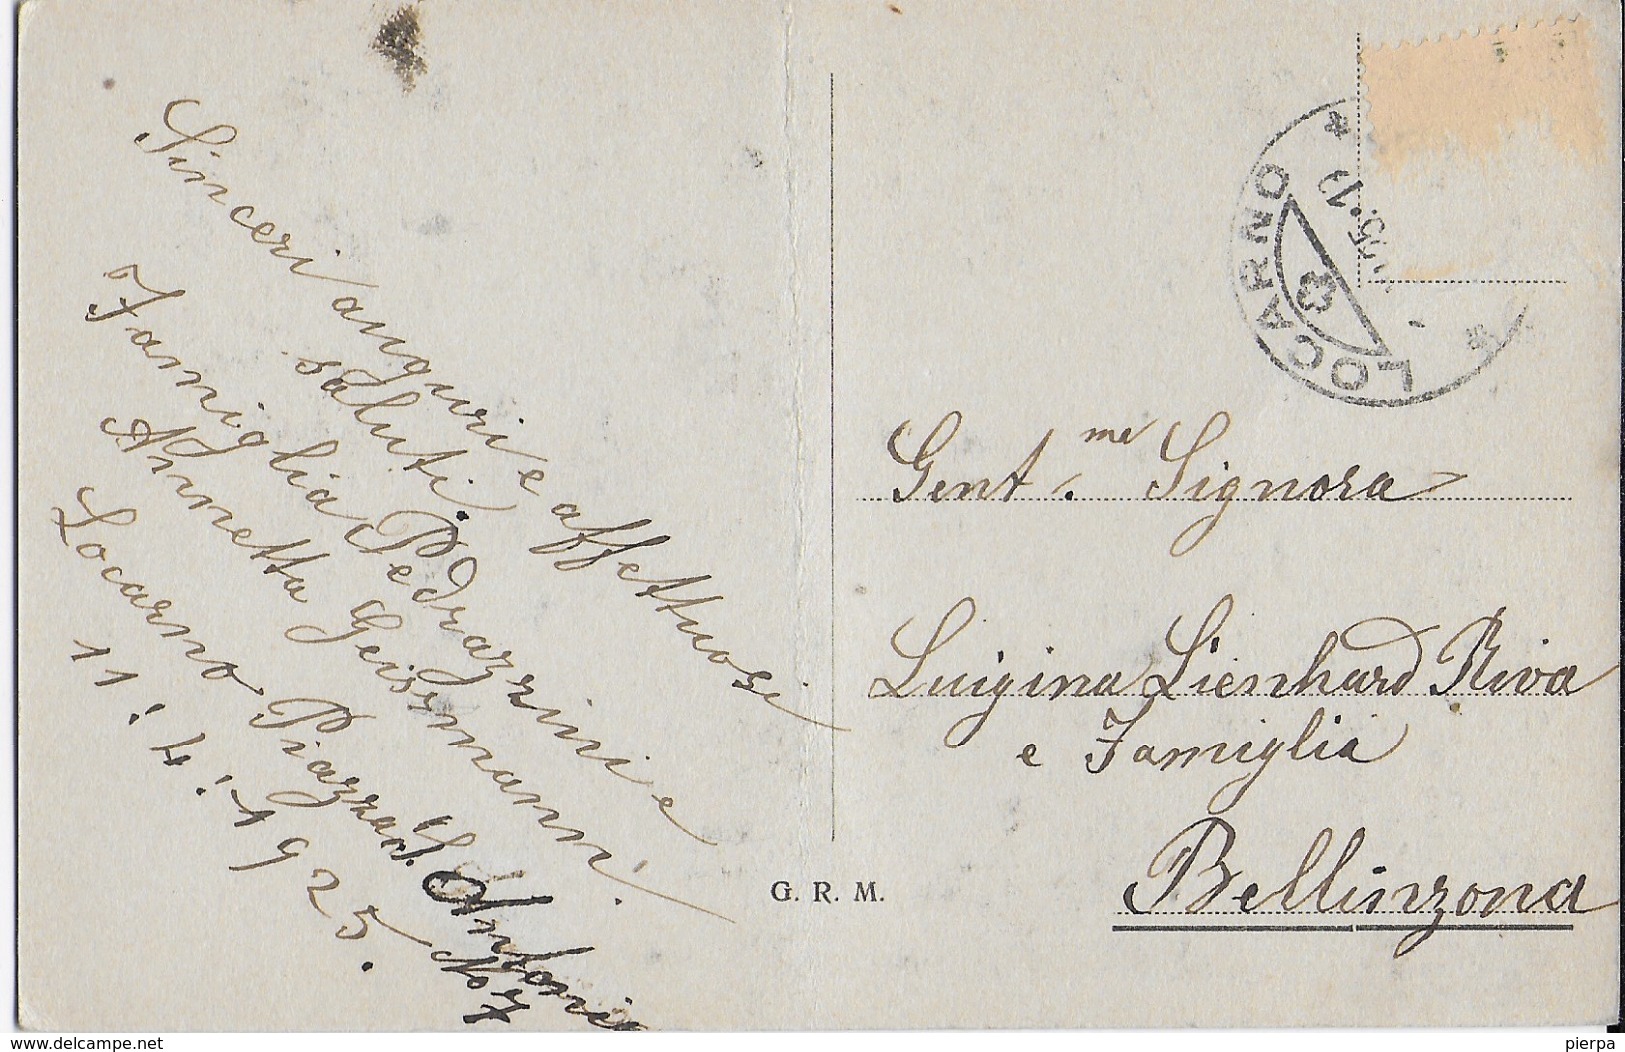 Sinceri auguri e affettuosi
saluti.
Famiglia Pedrazzini e
Annetta Geissmann.
Locarno Piazza S. Antonio
No 7
11. 4. 1925.
G. R. M.
LOCARNO
Gent.me Signora
Luigina Lienhard Riva
e Famiglia
Bellinzona
www.delcampe.net
pierpa